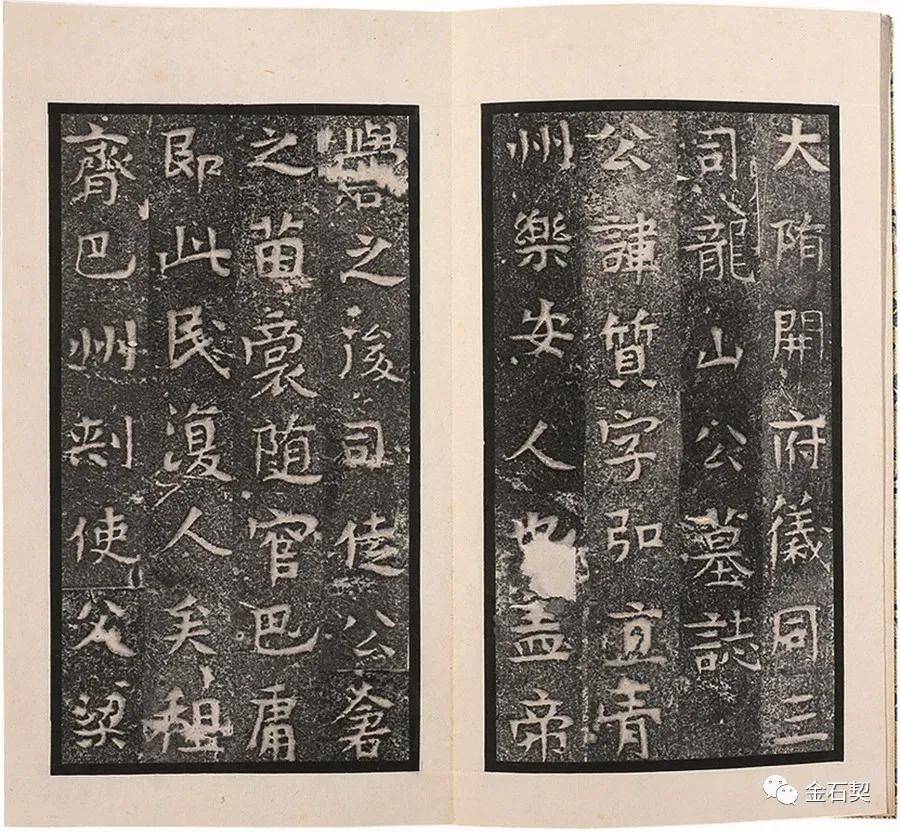 大隋開府儀同三
司龍山公墓誌
公諱質字弘直青
州樂安人也盖帝
嚳之後司徒公
之苗裔隨官巴庸
即此民復人矣祖
齊巴州刾使父梁
金石契